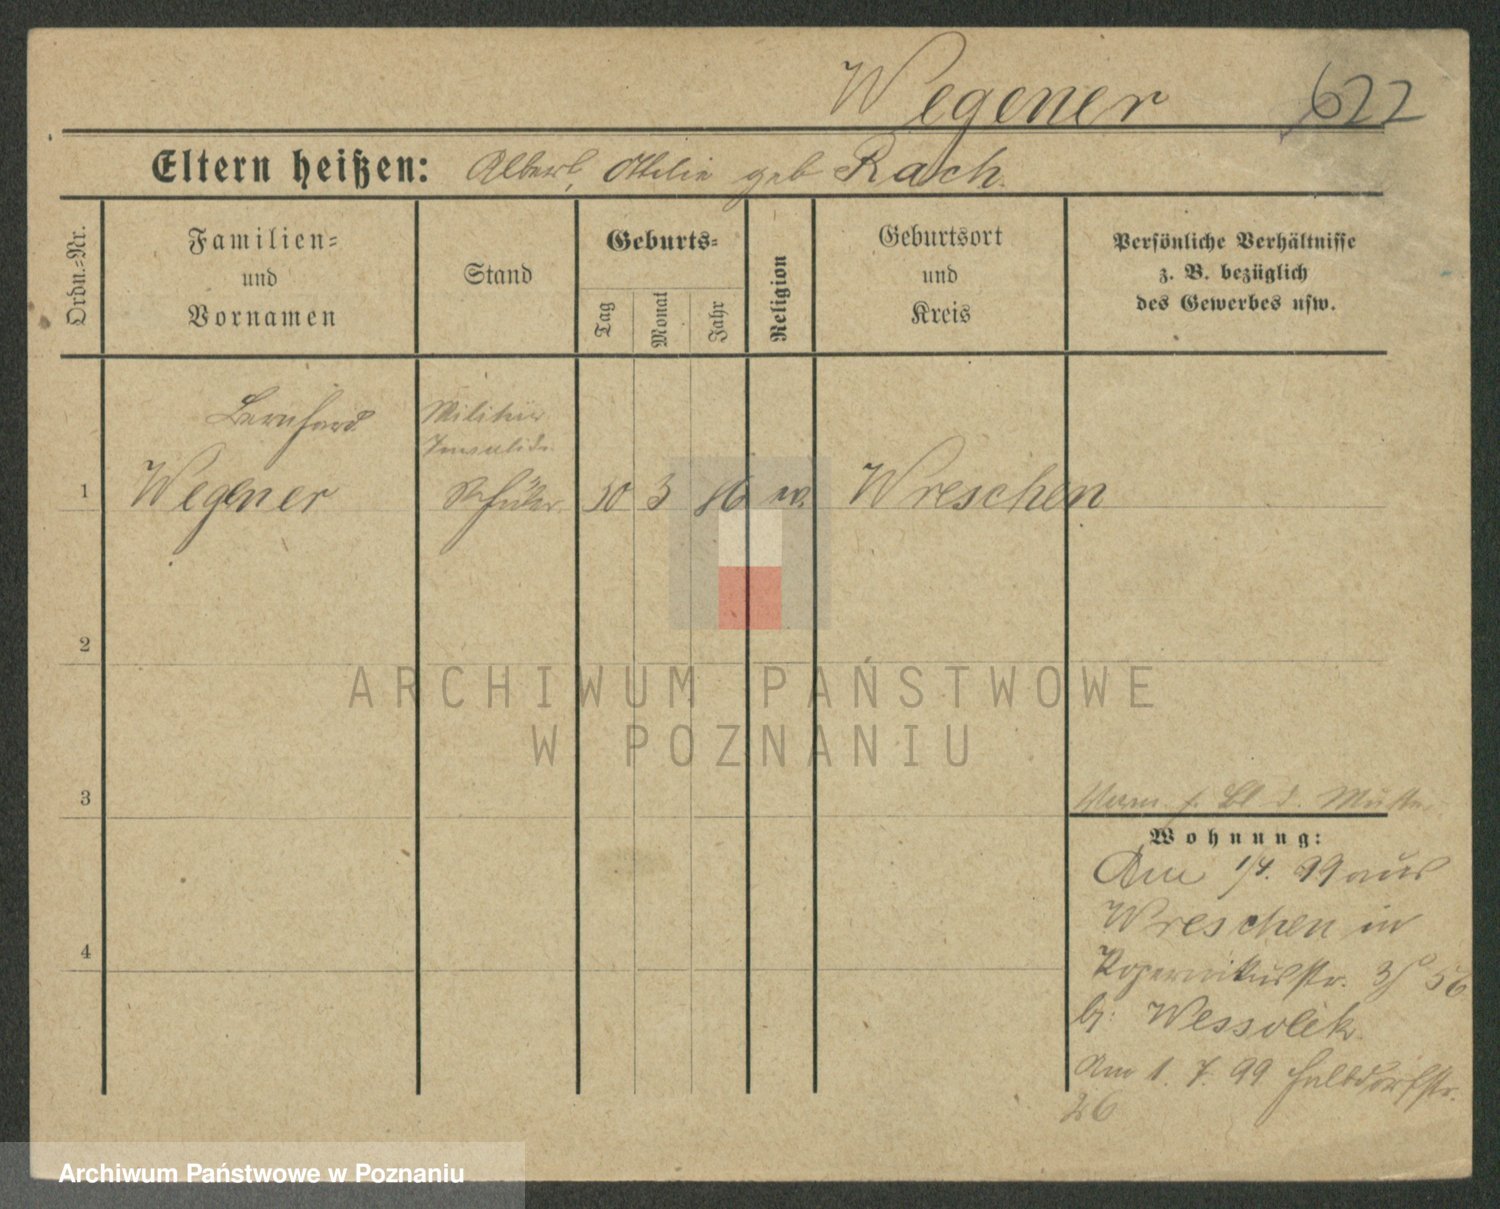 Wegener 622
Eltern heißen: Albert, Ottilie geb Rach.
Ordn.=Nr.
Familien=
und
Vornamen
Stand
Geburts=
Tag
Monat
Jahr
Religion
Geburtsort
und
Kreis
Persönliche Verhältnisse
z. B. bezüglich
des Gewerbes usw.
Bernhard Militär
Invalide
1 Wegener Schüler 30 3 86 Wreschen
2
ARCHIWUM PAŃSTWOWE
W POZNANIU
3
d. Mutter
Wohnung:
Am 1/4. 99 aus
Wreschen in
Kopernikusstr.
b: Wessolek
4
Am 1. 7. 99 Halbdorfstr.
26
Archiwum Państwowe w Poznaniu